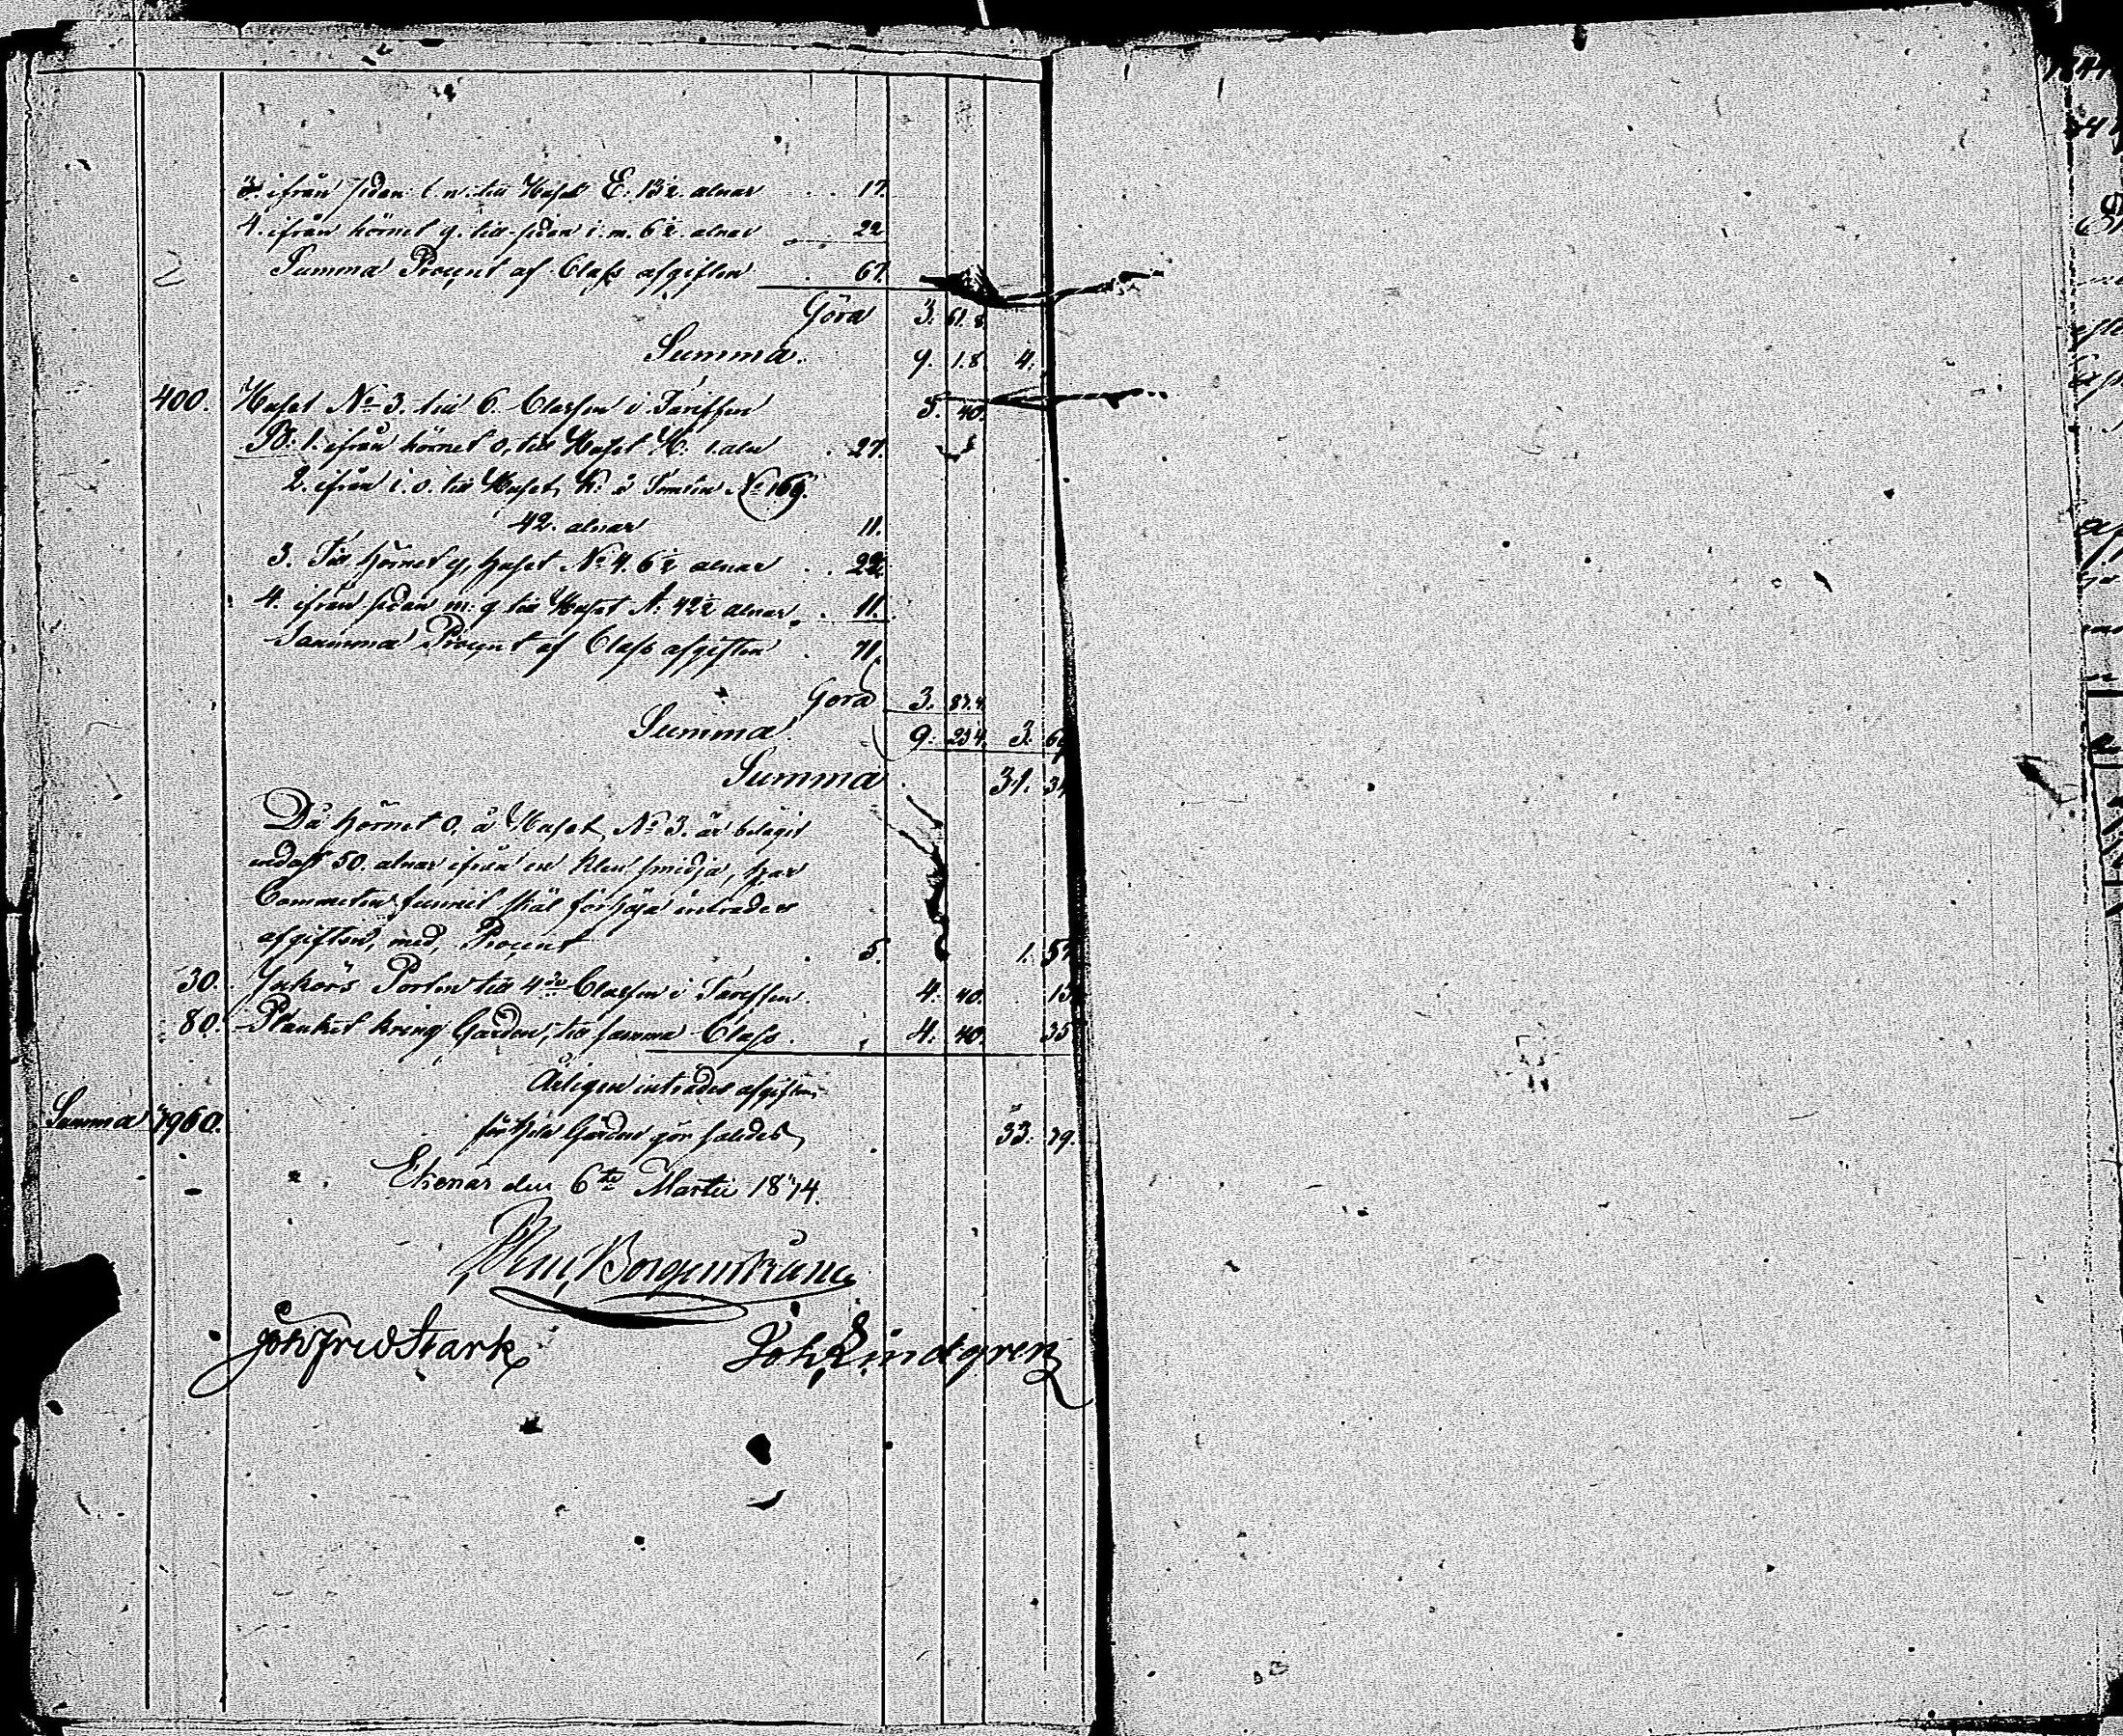 3. ifrån sidan l. n. till Huset E. 13½ alnar . . 17.
4. ifrån hörnet q. till sidan i. m. 6½. alnar . 22
Summa Procent af Class afgiften . 67.
Göra 3. 61. 8.
Summa. 9. 1. 8. 4.
400. Huset No 3. till 6. Classen i Tariffen 5. 40.
PS: 1. ifrån hörnet o, till Huset H. 1. aln . 27.
2. ifrån i. o. till Huset, K. å Tomten No 169.
42. alnar 11.
3. Till hörnet q, huset No 4. 6½ alnar . . 22.
4. ifrån sidan m. q till Huset A. 42½ alnar . 11.
Summa Procent af Class afgiften . 71.
Göra 3. 83. 4
Summa 9. 23 4. 3.
Summa . 31. 34
Då hörnet o, å Huset, No 3. är belägit
endast 50. alnar ifrån en Klen smidja, har
Committen funnit skäl förhöja inträdes
afgiften, med, Procent . 5. 1. 57
30. Inkörs Porten till 4de Classen i Tariffen. 4. 40. 13
80. Planket kring Gården, till samma Class. 4. 40. 35
Årligen inträdes afgiften
Summa 7960. för hela Gården gör således 33. 39.
Ekenäs den 6te Martii 1844.
Borgenström
Joh Fred Stark Joh Lindgren